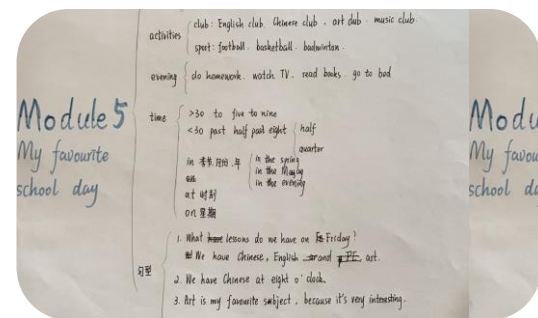 Module 5
My favourite
school day
activities
club: English club. Chinese club. art club. music club.
sport: football. basketball. badminton.
evening
do homework. watch TV. read books. go to bed
time
>30 to five to nine
<30 past half past eight
half
quarter
in 季节.月份.年
in the spring
in the
in the evening
at 时刻
on 星期
句型
1. What lessons do we have on Friday?
We have Chinese, English and PE, art.
2. We have Chinese at eight o'clock.
3. Art is my favourite subject, because it's very interesting.
Modu
My favou
school da